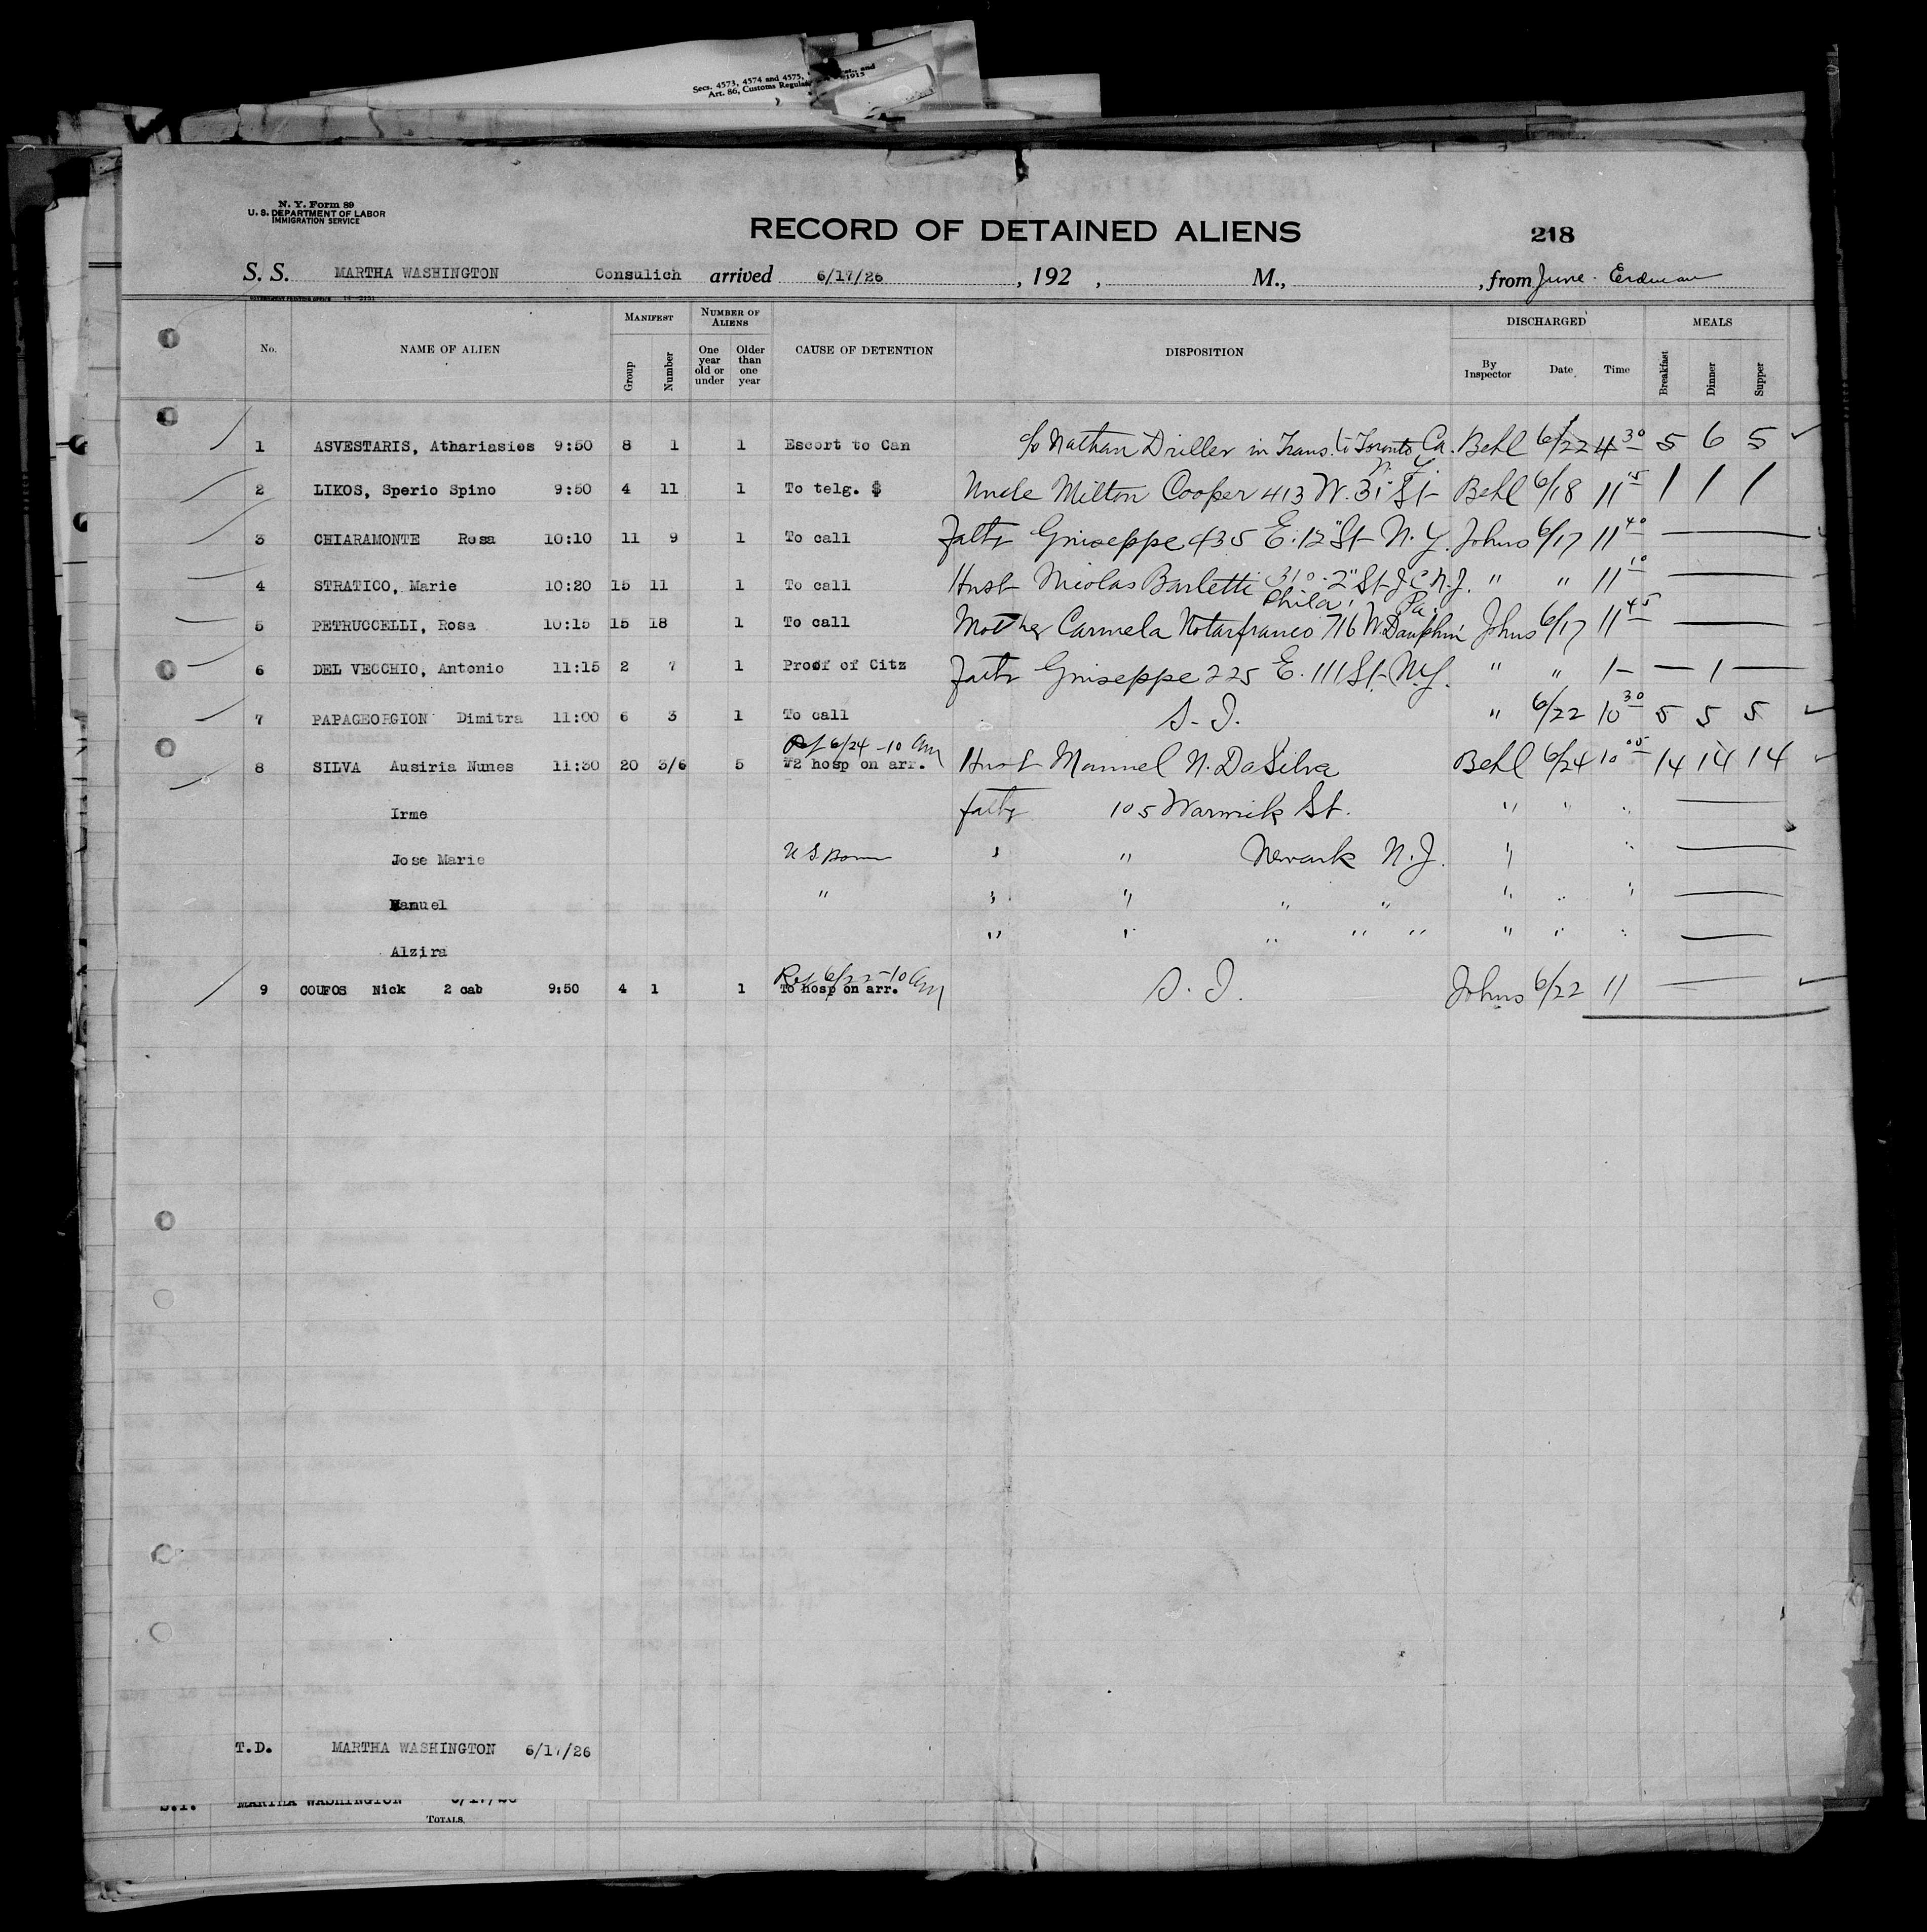 Secs. 4573, 4574 and 4575,
Art. 86, Customs 1915
N. Y. Form 89
U. S. DEPARTMENT OF LABOR
IMMIGRATION SERVICE
RECORD OF DETAINED ALIENS 218
S. S. MARTHA WASHINGTON Consulich arrived 6/17/26 , 192 , M., , from June Erdman
MANIFEST NUMBER OF ALIENS DISCHARGED MEALS
No. NAME OF ALIEN Group Number One year old or under Older than one year CAUSE OF DETENTION DISPOSITION By Inspector Date Time Breakfast Dinner Supper
1 ASVESTARIS, Athariasios 9:50 8 1 1 Escort to Can c/o Nathan Driller in Trans. to Toronto Ca. Behl 6/22 4 30 5 6 5
N. Y.
2 LIKOS, Sperio Spino 9:50 4 11 1 To telg. $ Uncle Milton Cooper 413 W. 31 St Behl 6/18 11 15 1 1 1
3 CHIARAMONTE Rosa 10:10 11 9 1 To call Fathr Giuseppe 435 E. 12" St N. Y. Johns 6/17 11 40 —
4 STRATICO, Marie 10:20 15 11 1 To call Husb Nicolas Barletti 310 - 2" St J C N.J. " " 11 10 —
Phila, Pa.
5 PETRUCCELLI, Rosa 10:15 15 18 1 To call Mother Carmela Notarfranco 716 W. Dauphin Johns 6/17 11 45 —
6 DEL VECCHIO, Antonio 11:15 2 7 1 Proof of Citz Fathr Giuseppe 225 E. 111 St. N.Y. " " 1- — 1 —
7 PAPAGEORGION Dimitra 11:00 6 3 1 To call S. I. " 6/22 10 30 5 5 5
Ref 6/24 -10 am
8 SILVA Ausiria Nunes 11:30 20 3/6 5 #2 hosp on arr. Husb Manuel N. DaSilva Behl 6/24 10 05 14 14 14
Irme fathr 105 Warwick St. " " " —
Jose Marie U S Born " " Newark N.J. " " —
Manuel " " " " " " " " —
Alzira " " " " " " " " —
Ref 6/22 -10 am
9 COUFOS Nick 2 cab 9:50 4 1 1 To hosp on arr. S. I. Johns 6/22 11 —
T.D. MARTHA WASHINGTON 6/17/26
S.I. MARTHA WASHINGTON 6/17/26
TOTALS,